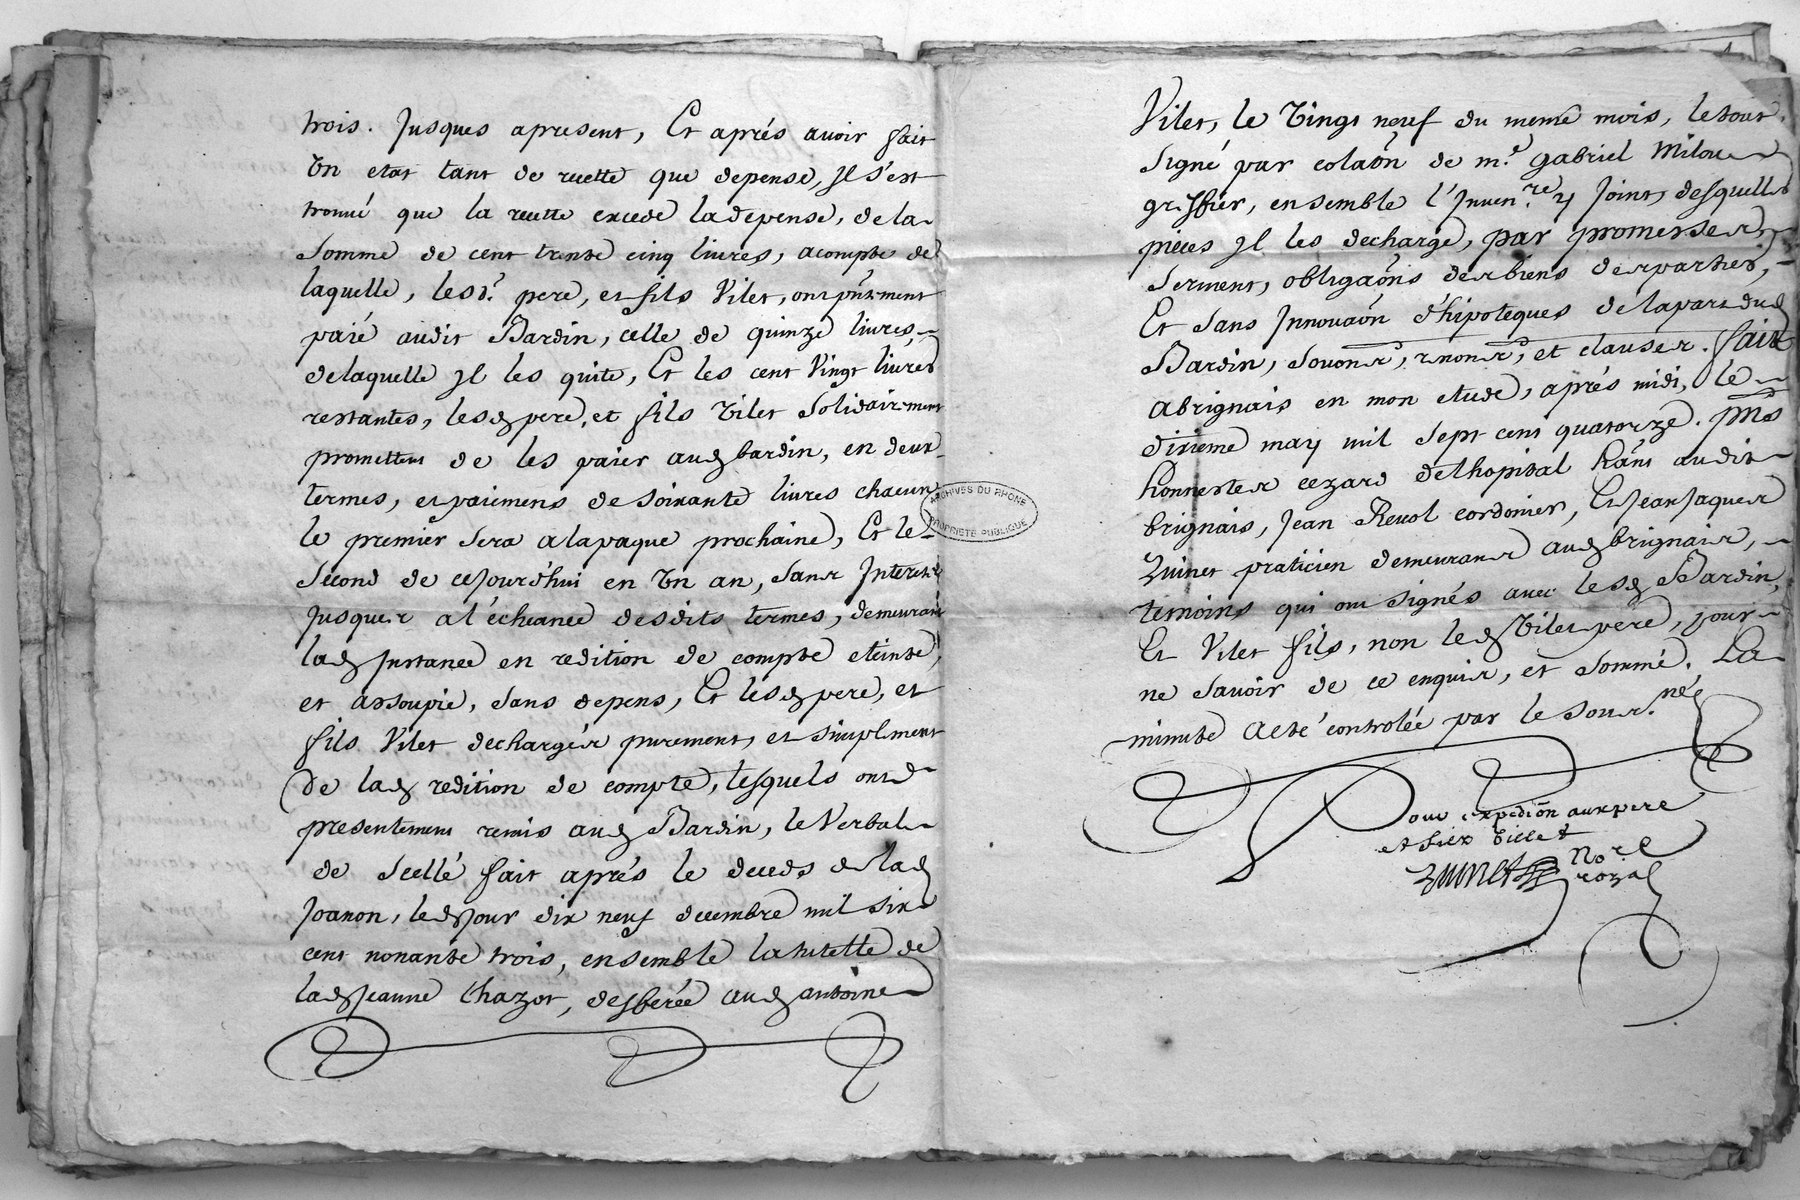 trois. Jusques apresent, Et aprés avoir fait
Un etat tant de recette que depense, Jl s'est
trouvé que la recette excede la depense, de la
somme de cent trente cinq livres, acompte de
laquelle, lesd.ˢ pere, et fils Vilet, ont pñtement
paié audit Bardin, celle de quinze livres,
de laquelle Jl les quite, Et les cent Vingt livres
restantes, lesd pere, et fils Vilet solidairement
promettent de les paier aud bardin, en deux
termes, et paiemens de soixante livres chacun
le premier sera a la paque prochaine, Et le
second de cejourd'hui en Un an, sans Jnterest
Jusques a l'écheance desdits termes, demeurant
lad Jnstance en redition de compte eteinte,
et assoupie, sans depens, Et lesd pere, et
fils Vilet dechargés purement, et simplement
de lad redition de compte, lesquels ont
presentement remis aud Bardin, le Verbal
de scellé fait aprés le deceds de lad
Joanon, led Jour dix neuf decembre mil six
cent nonante trois, ensemble la tutelle de
lad Jeanne Chazot, defferée aud antoine
Vilet, le Vingt neuf du meme mois, le tout
signé par colaõn de m.ᵉ gabriel Milou
greffier, ensemble l'Jnven.ʳᵉ y Joint, desquelles
pieces Jl les decharge, par promesses,
serment, obligaõns des biens des parties,
Et sans Jnnovaõn d'hipoteques de la part dud
Bardin, soumˢ, renonˢ, et clauses. fait
a brignais en mon etude, aprés midi, le
dixieme may mil sept cent quatorze. pñts
honnestes cezard delhopital hãnt audit
brignais, Jean Revol cordonier, Et Jean Jaques
Zuinet praticien demeurans aud brignais,
temoins qui ont signés avec lesd Bardin,
Et Vilet fils, non led Vilet pere, pour
ne savoir de ce enquis, et sommé. La
minute a eté controlée par le sous.ⁿᵉ
Pour expediõn aux pere
et fils Villet
Zuinet Noʳᵉ
royal
ARCHIVES DU RHONE
PROPRIÉTÉ PUBLIQUE